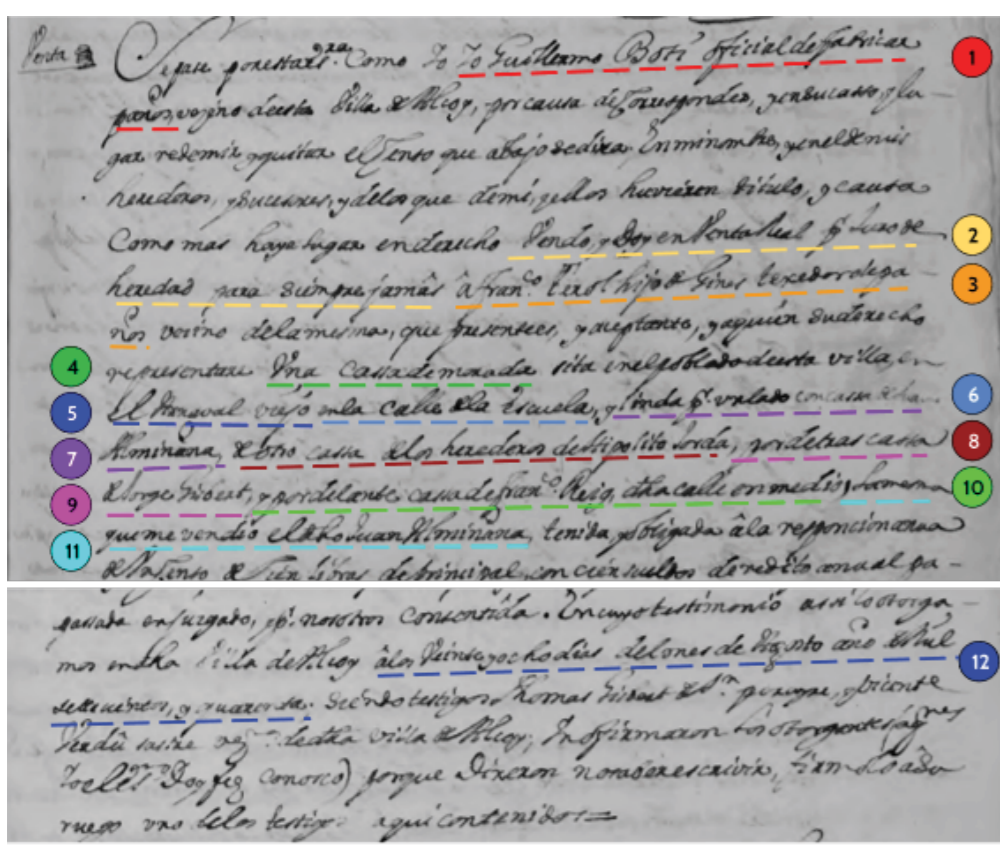 Venta
Sepase por esta Cart. Como Yo Guillermo Botí oficial de fabricar
paños, vezino de esta Villa de Alcoy, por causa de Corresponder, y en su casso, y lu-
gar redemir y quitar el Cento que abajo se dira, En mi nombre, y en el de mis
herederos, y sucesores, y de los que de mi, y ellos huvieren titulo, y causa
Como mas haya lugar en derecho Vendo, y Doy en Venta Real por Juro de
heredad para siempre jamàs à Franco. Terol hijo de Gines texedor de pa-
ños vecino de la misma, que presente es, y aceptante, y a quien su derecho
representare Una Cassa de morada sita in el poblado de esta villa, en
el Arraval viejo en la calle de la Escuela, y linda por un lado con cassa de
Alminana, de otro cassa de los herederos de Ipolito Jordá, por detras cassa
de Jorge Gisbert, y por delante cassa de Franco. Reig, dha calle en medio, La mesma
que me vendio el dho Juan Alminana, tenida, y obligada à la
de un Cento de Cien Libras de principal, con cien sueldos de redito anual pa-
passada en juzgado, y por nosotros Consentida. En cuyo testimonio assi lo otorga-
mos en dha Villa de Alcoy à los Veinte y ocho dias del mes de Agosto año de Mil
setecientos, y quarenta. Siendo testigos Thomas Gisbert y Vicente
Verdú sastre de dha villa de Alcoy; Y no firmaron los otorgantes (a q.nes
Yo el Es.no Doy fee conosco) porque Dixeron no saber escrivir, firmolo à su
ruego uno de los testigos aqui contenidos =
1
2
3
4
5
6
7
8
9
10
11
12